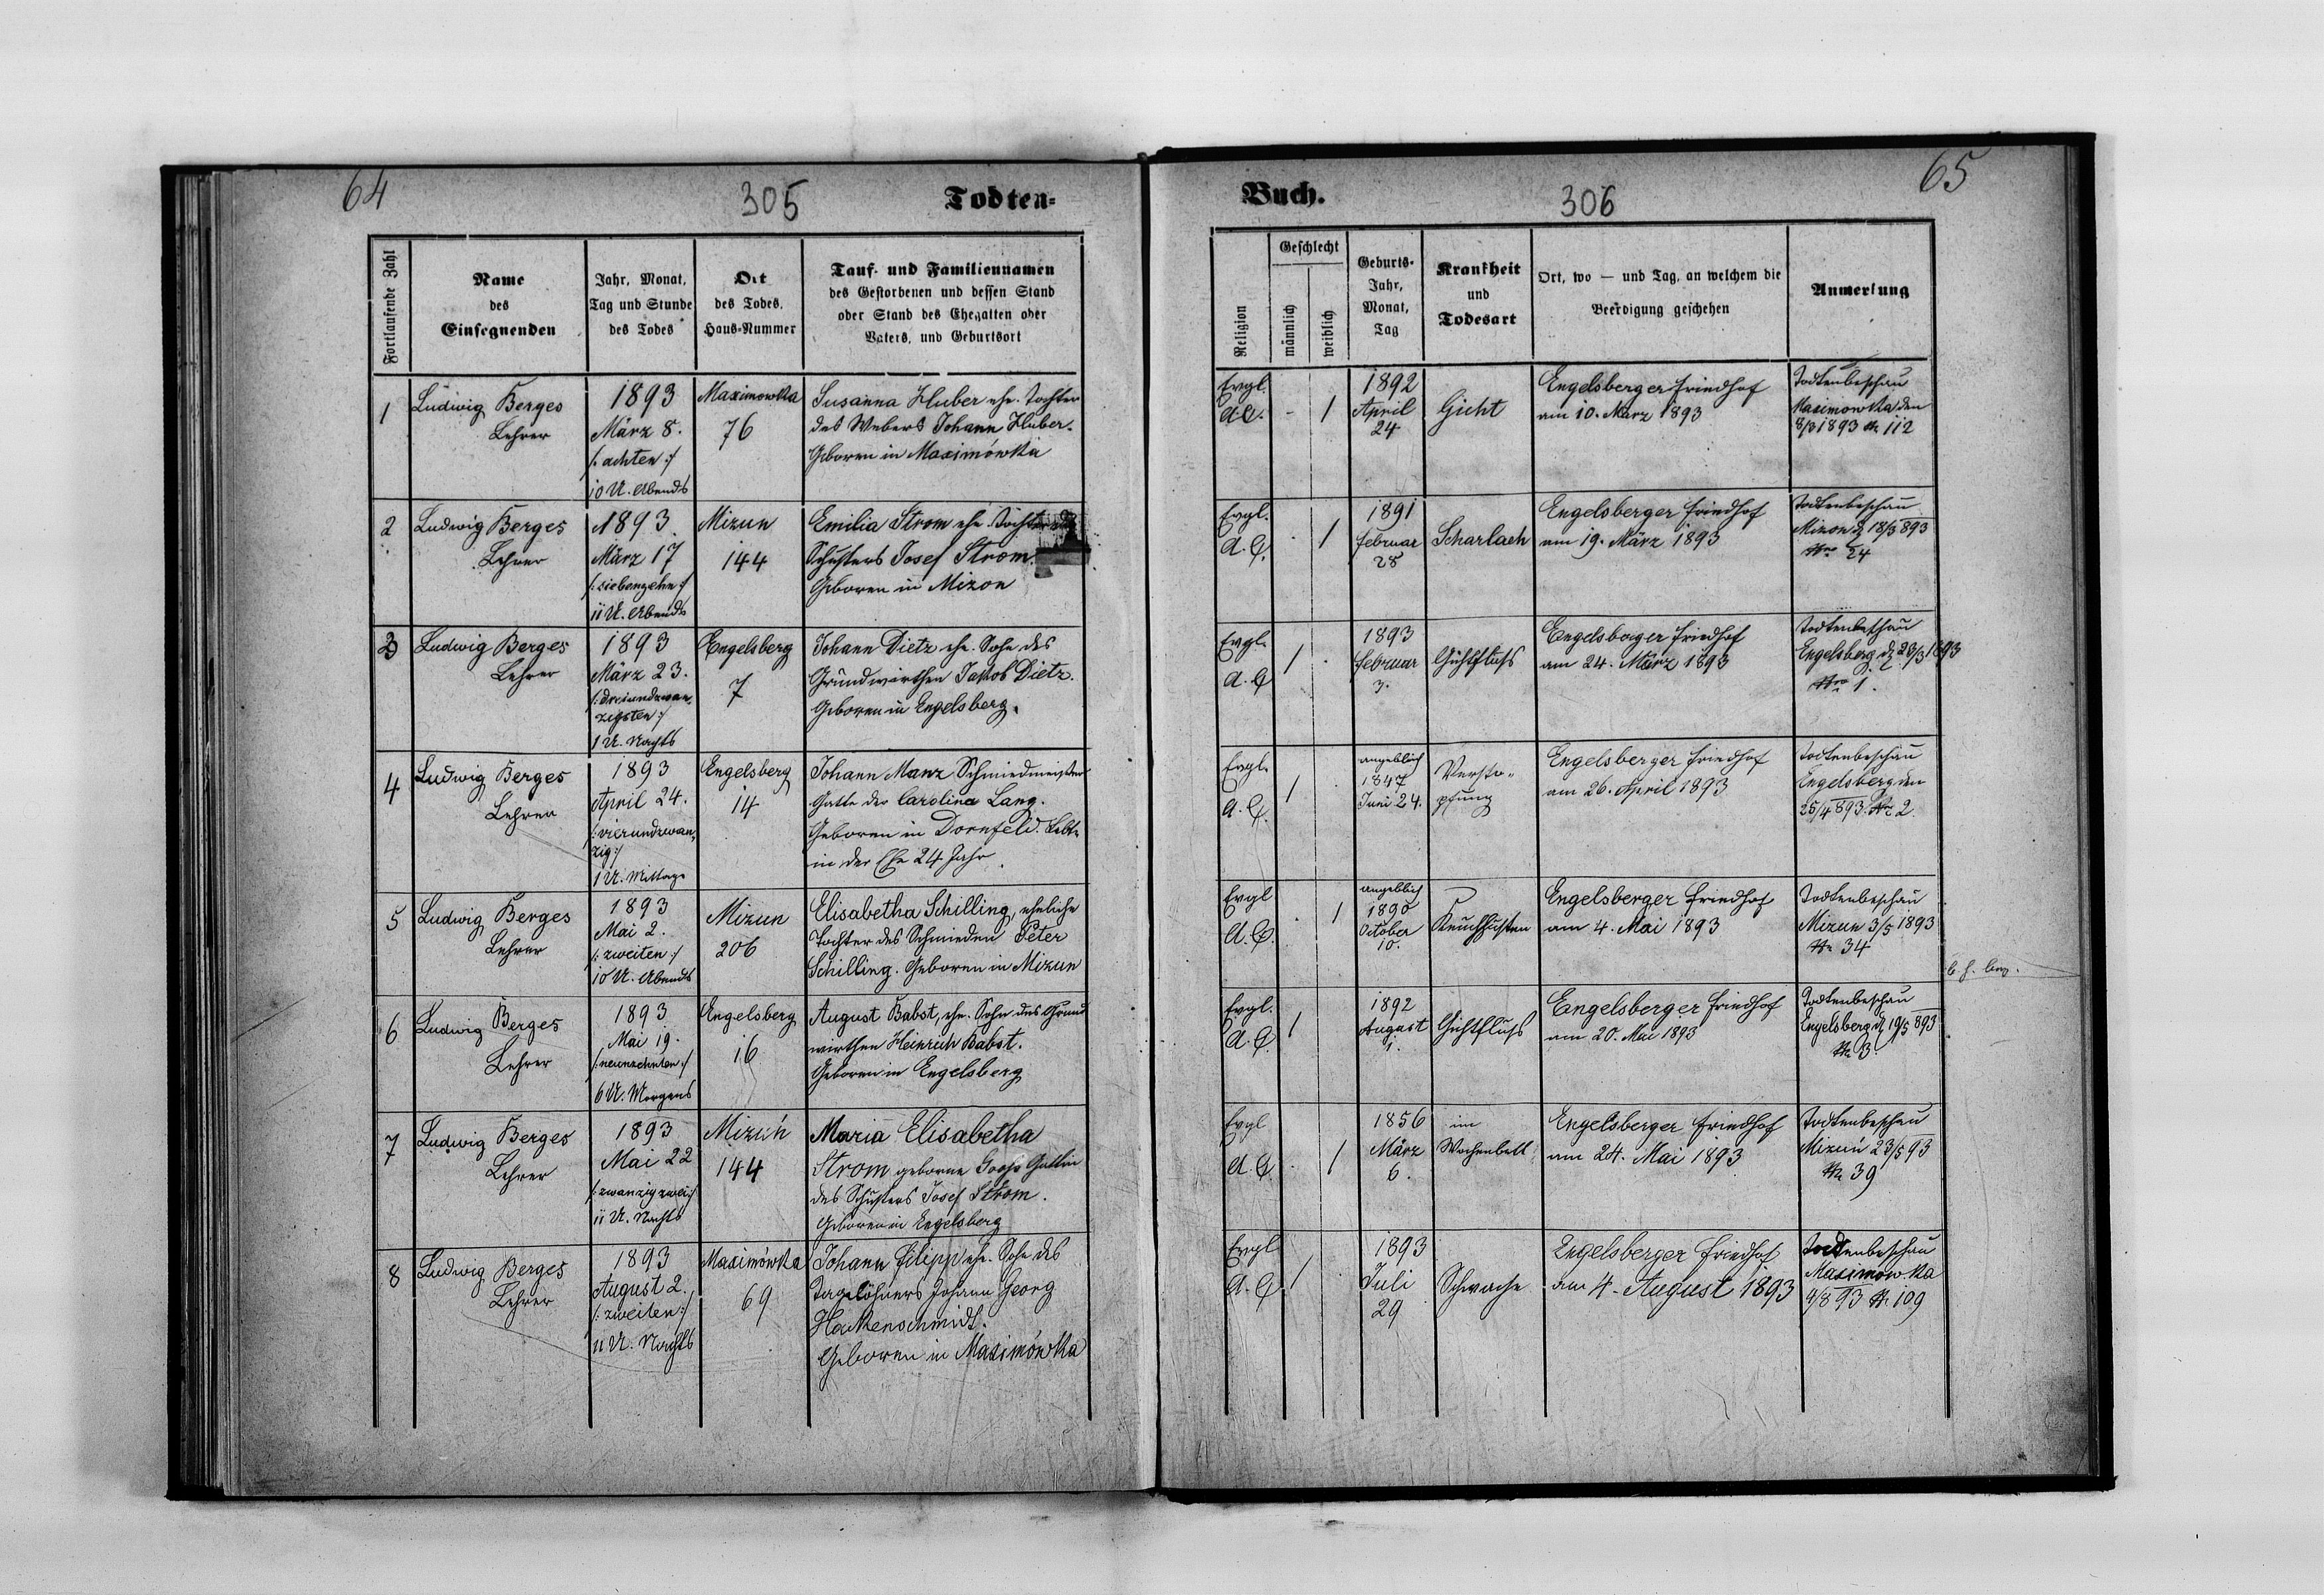 64
305
Todten-
Fortlaufende Zahl
Name
des
Einsegnenden
Jahr, Monat,
Tag und Stunde
des Todes
Ort
des Todes,
Haus-Nummer
Tauf- und Familiennamen
des Gestorbenen und dessen Stand
oder Stand des Ehegatten oder
Vaters, und Geburtsort
1
Ludwig Berges
Lehrer
1893
März 8.
/: achten :/
10 U. Abends
Maximowka
76
Susanna Huber ehe. Tochter
des Webers Johann Huber.
Geboren in Maximówka
2
Ludwig Berges
Lehrer
1893.
März 17
/: siebenzehn :/
11 U. Abends
Mizun
144
Emilia Strom ehe. Tochter des
Schusters Josef Strom.
Geboren in Mizon
3
Ludwig Berges
Lehrer
1893
März 23.
/: dreiundzwan-
zigsten :/
1 U. Nachts
Engelsberg
7
Johann Dietz ehe. Sohn des
Grundwirthen Jakob Dietz.
Geboren in Engelsberg.
4
Ludwig Berges
Lehrer
1893
April 24.
/: vierundzwan-
zig :/
1 U. Mittags
Engelsberg
14
Johann Manz Schmiedmeister
Gatte der Carolina Lang.
Geboren in Dornfeld. Lebte
in der Ehe 24 Jahr.
5
Ludwig Berges
Lehrer
1893
Mai 2.
/: zweiten :/
10 U. Abends
Mizun
206
Elisabetha Schilling, eheliche
Tochter des Schmieden Peter
Schilling. Geboren in Mizun
6
Ludwig Berges
Lehrer
1893
Mai 19.
/: neunzehnten :/
6 U. Morgens
Engelsberg
16
August Babst, ehe. Sohn des Grund
wirthen Heinrich Babst.
Geboren in Engelsberg
7
Ludwig Berges
Lehrer
1893
Mai 22
/: zwanzig zwei :/
11 U. Nachts
Mizuń
144
Maria Elisabetha
Strom geborne Gattin
des Schusters Josef Strom.
Geboren in Engelsberg
8
Ludwig Berges
Lehrer
1893
August 2.
/: zweiten :/
11 U. Nachts
Maximówka
69
Johann Filipp ehe. Sohn des
Tagelöhners Johann Georg
Hackenschmidt.
Geboren in Maximówka
65
Buch.
306
Religion
Geschlecht
männlich
weiblich
Geburts-
Jahr,
Monat,
Tag
Krankheit
und
Todesart
Ort, wo — und Tag, an welchem die
Beerdigung geschehen
Anmerkung
Evgl.
A.C.
-
1
1892
April
24
Gicht
Engelsberger Friedhof
am 10. März 1893
Todtenbeschau
Maximowka den
8/3 1893 No 112
Evgl.
A. C.
.
1
1891
Februar
28
Scharlach
Engelsberger Friedhof
am 19. März 1893
Todtenbeschau
Mizon d 18/3 893
Nro 24
Evgl.
A. C
1
.
1893
Februar
3.
Gichtfluss
Engelsberger Friedhof
am 24. März 1893
Todtenbeschau
Engelsberg d 23/3 1893
Nro 1.
Evgl.
A. C.
1
.
angeblich
1847
Juni 24.
Versto-
pfung
Engelsberger Friedhof
am 26. April 1893
Todtenbeschau
Engelsberg den
25/4 893. No 2.
Evgl
A. C.
.
1
angeblich
1890
October
10.
Keuchhusten
Engelsberger Friedhof
am 4. Mai 1893
Todtenbeschau
Mizun 3/5 1893
No 34
Evgl.
A. C.
1
1892
August
1.
Gichtfluss
Engelsberger Friedhof
am 20. Mai 1893
Todtenbeschau
Engelsberg d 19/5 893
No 3.
Evgl
A. C.
.
1
1856
März
6.
im
Wochenbett
Engelsberger Friedhof
am 24. Mai 1893
Todtenbeschau
Mizuń 23/5 93
No 39
Evgl
A. C.
1
.
1893
Juli
29
Schwache
Engelsberger Friedhof
am 4. August 1893
Todtenbeschau
Maximówka
4/8 93 No 109